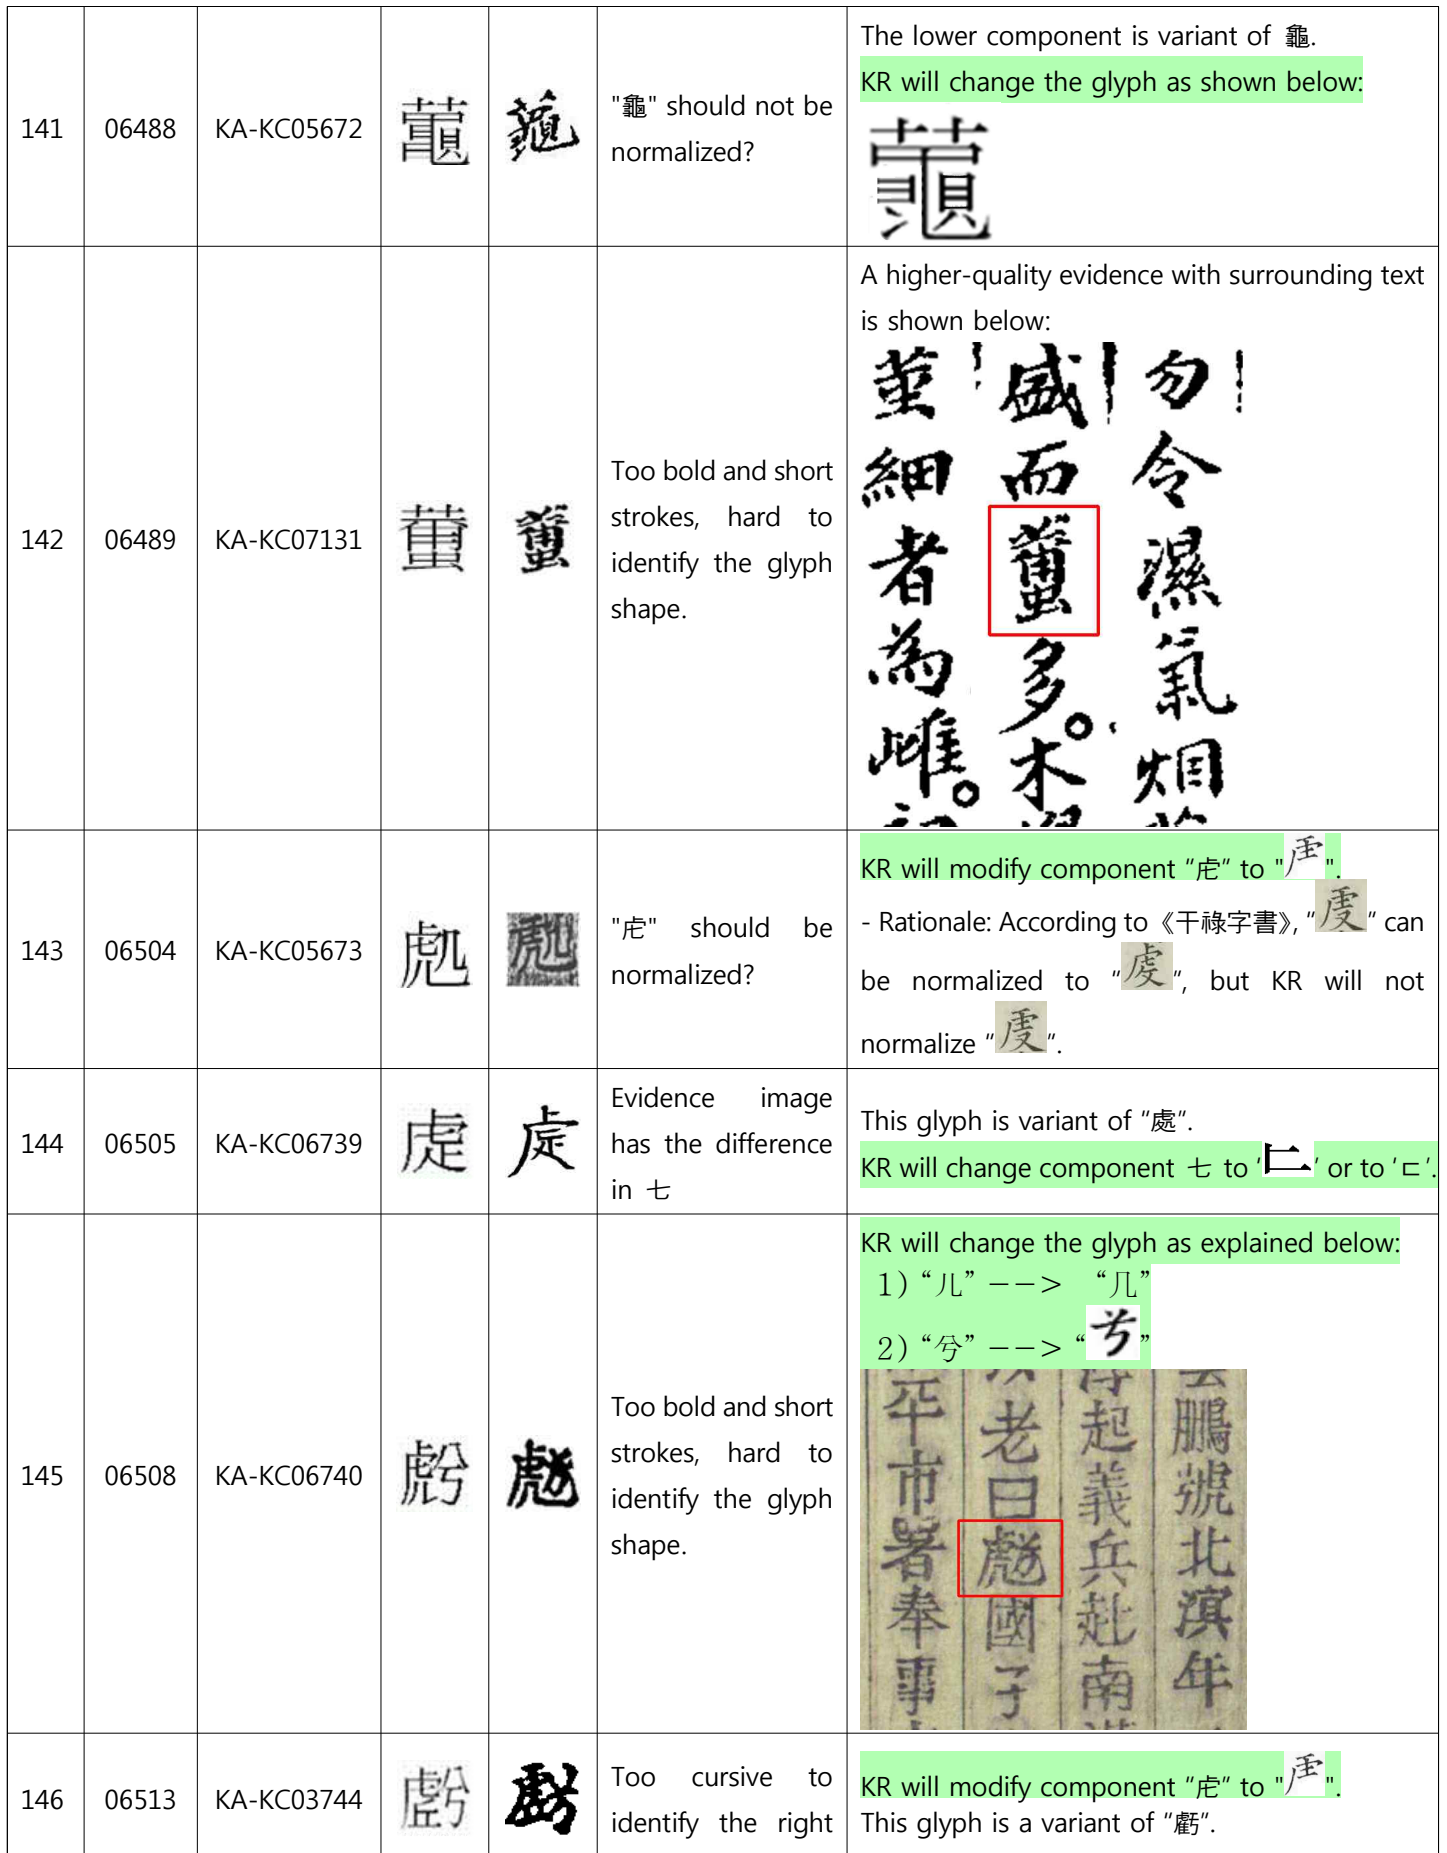 141 06488 KA-KC05672
"龜" should not be
normalized?
The lower component is variant of 龜.
KR will change the glyph as shown below:
142 06489 KA-KC07131
Too bold and short
strokes, hard to
identify the glyph
shape.
A higher-quality evidence with surrounding text
is shown below:
勿令濕氣烟
盛而多。木
莖細者為雌。
143 06504 KA-KC05673
"虍" should be
normalized?
KR will modify component "虍" to "".
- Rationale: According to 《干祿字書》, "" can
be normalized to "虔", but KR will not
normalize "".
144 06505 KA-KC06739
Evidence image
has the difference
in 七
This glyph is variant of "處".
KR will change component 七 to '' or to 'ㄷ'.
145 06508 KA-KC06740
Too bold and short
strokes, hard to
identify the glyph
shape.
KR will change the glyph as explained below:
1) “儿” --> “几”
2) “兮” --> “”
鵬號北滨年
起義兵赴南
老曰國子
平市署奉事
146 06513 KA-KC03744
Too cursive to
identify the right
KR will modify component "虍" to "".
This glyph is a variant of "虧".